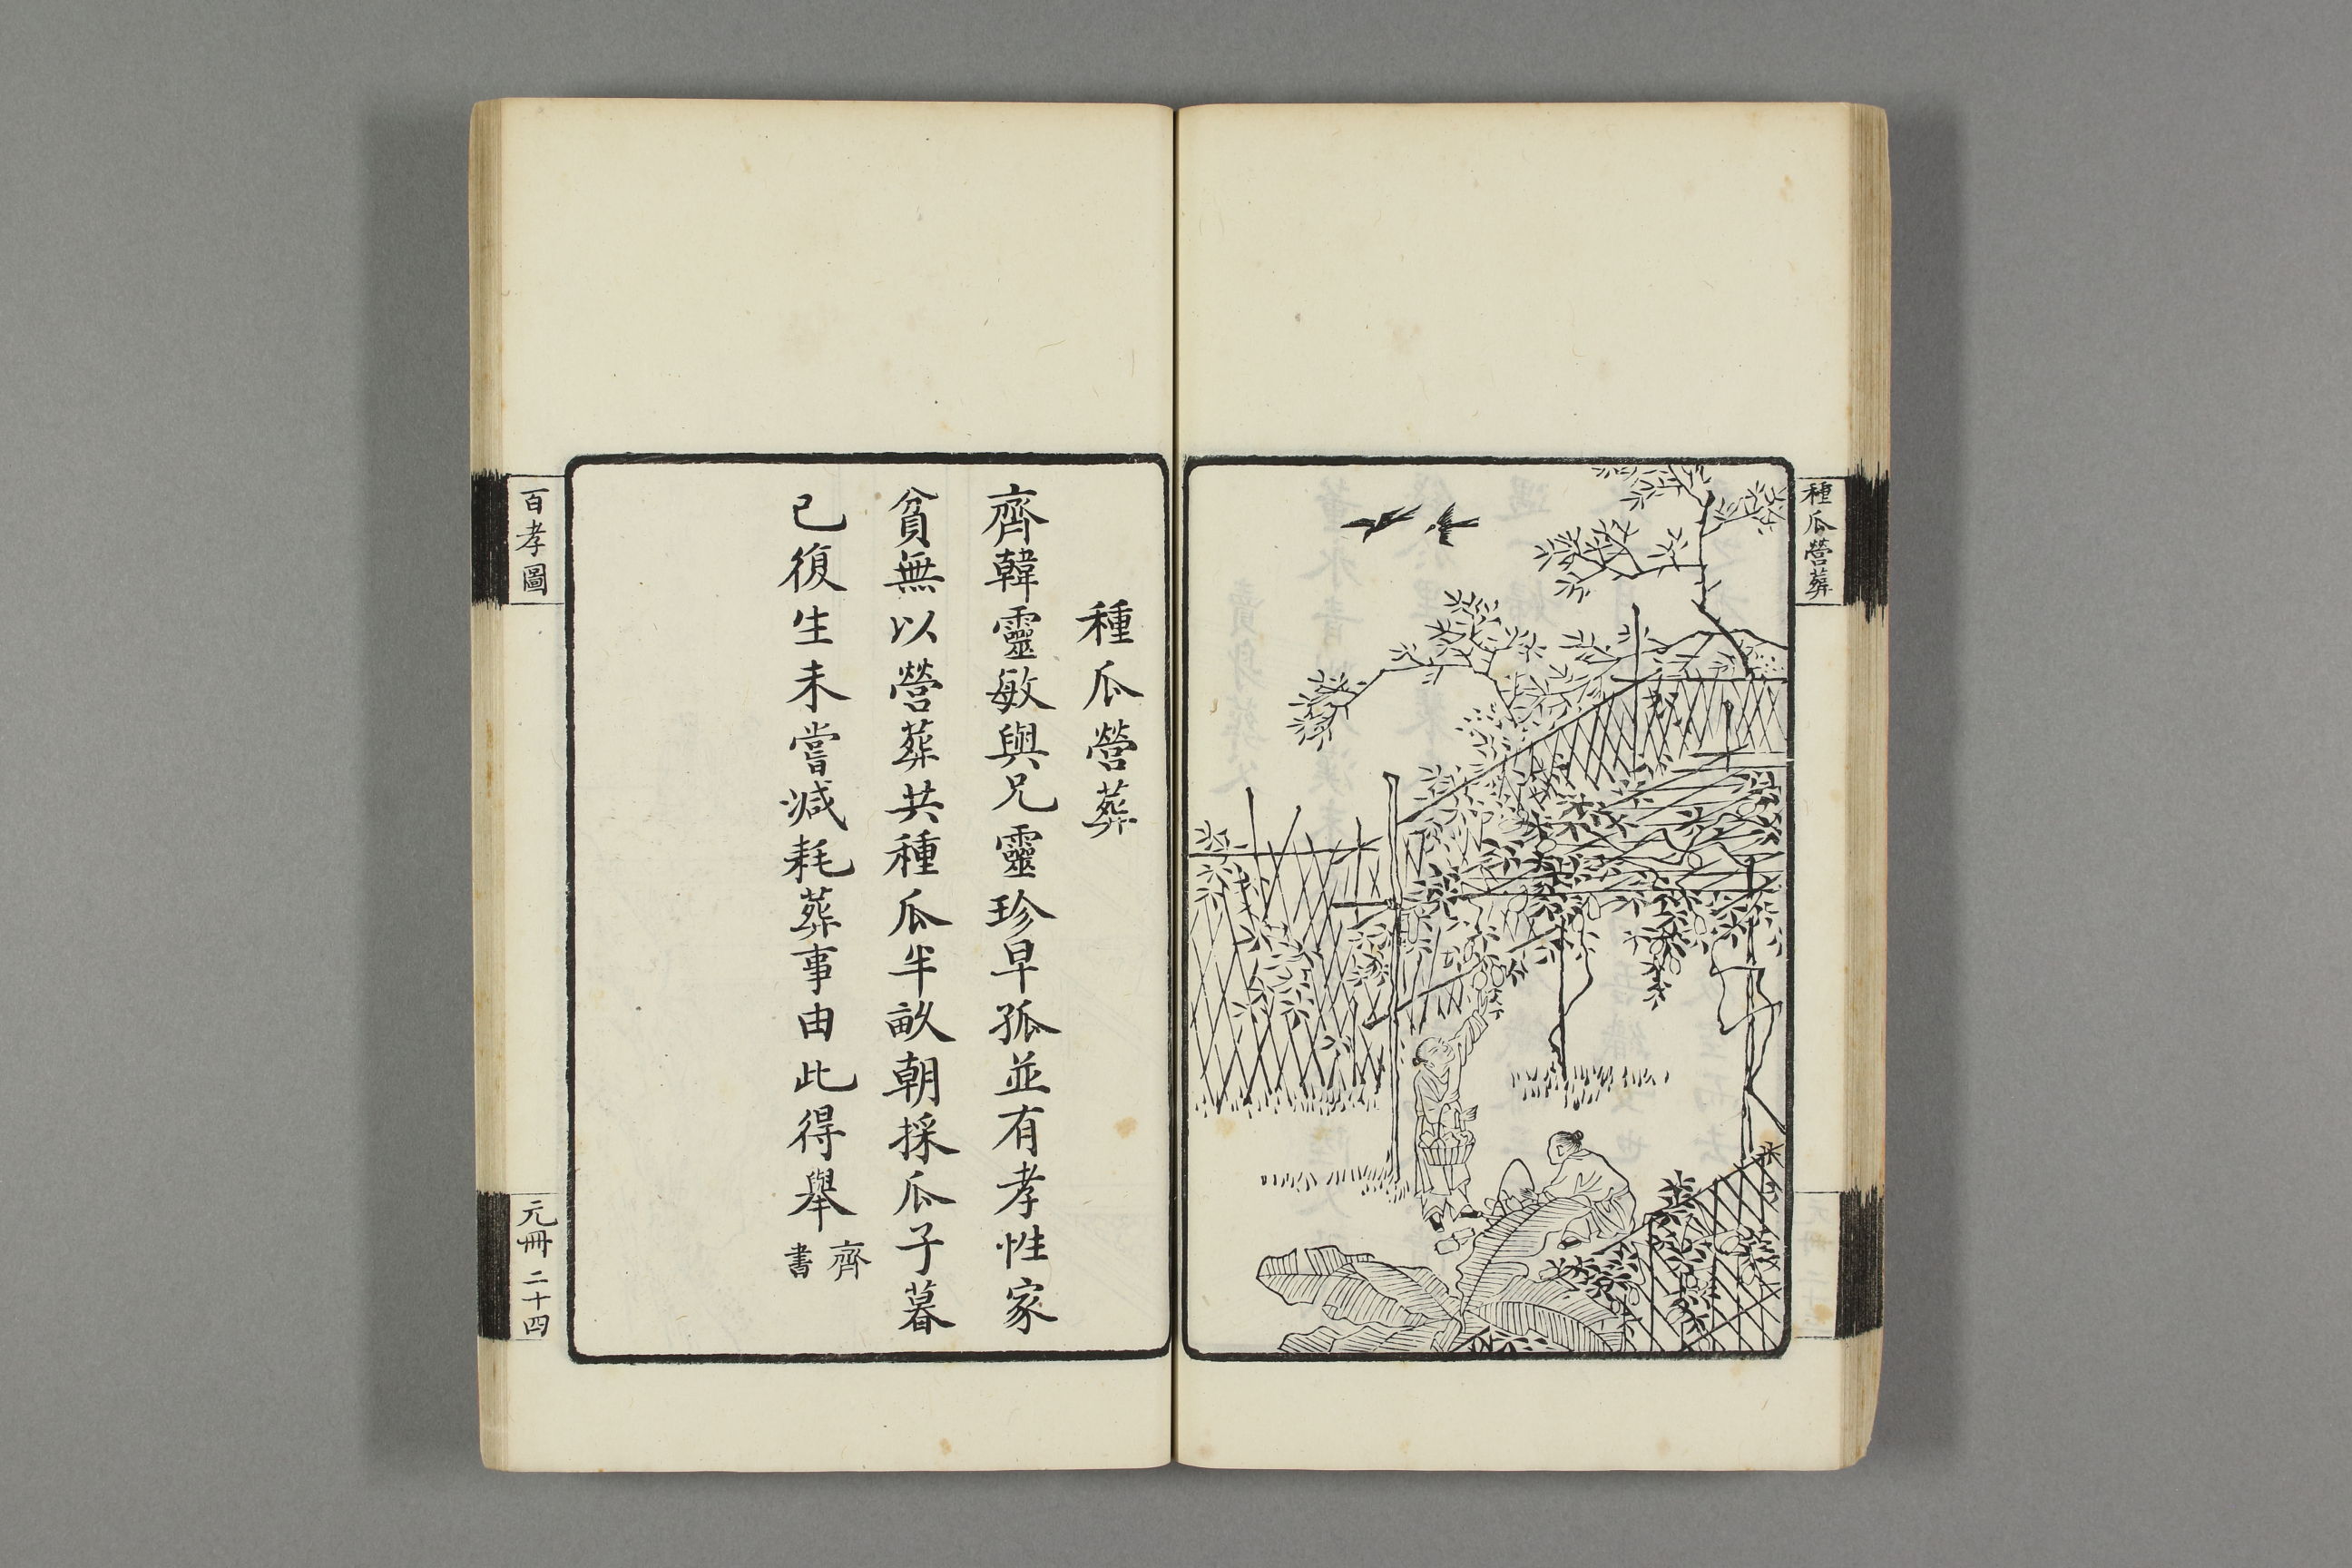 種瓜營葬
種瓜營葬
齊韓靈敏與兄靈珍早孤並有孝性家
貧無以營葬共種瓜半畝朝採瓜子暮
已復生未嘗減耗葬事由此得舉齊書
百孝圖
元冊二十四